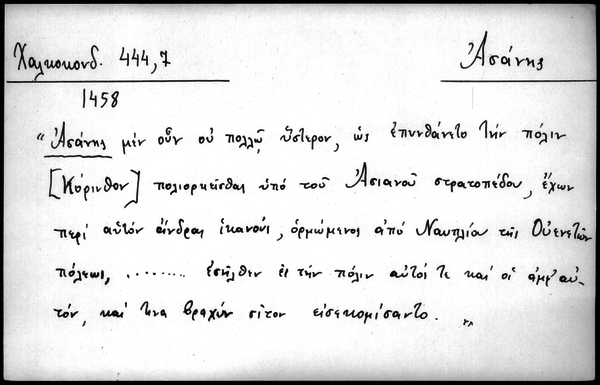 Χαλκοκονδ. 444,7
Ἀσάνης
1458
"Ἀσάνης μὲν οὖν οὐ πολλῷ ὕστερον, ὡς ἐπυνθάνετο τὴν πόλιν
[Κόρινθον] πολιορκεῖσθαι ὑπὸ τοῦ Ἀσιανοῦ στρατοπέδου, ἔχων
περὶ αὑτὸν ἄνδρας ἱκανούς, ὁρμώμενος ἀπὸ Ναυπλίου τῆς Οὐενετῶν
πόλεως, ........ ἐσῆλθεν ἐς τὴν πόλιν αὐτός τε καὶ οἱ ἀμφ' αὐ-
τόν, καὶ τινα βραχὺν σῖτον εἰσεκομίσαντο. "